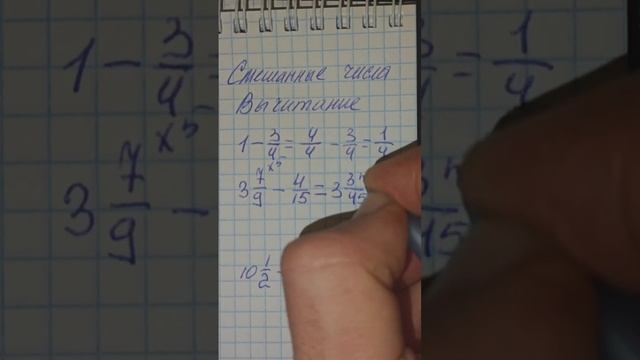 Смешанные числа
Вычитание
1 - 3/4 = 4/4 - 3/4 = 1/4
3 7/9 ×5 - 4/15 = 3 3
10 1/2 -